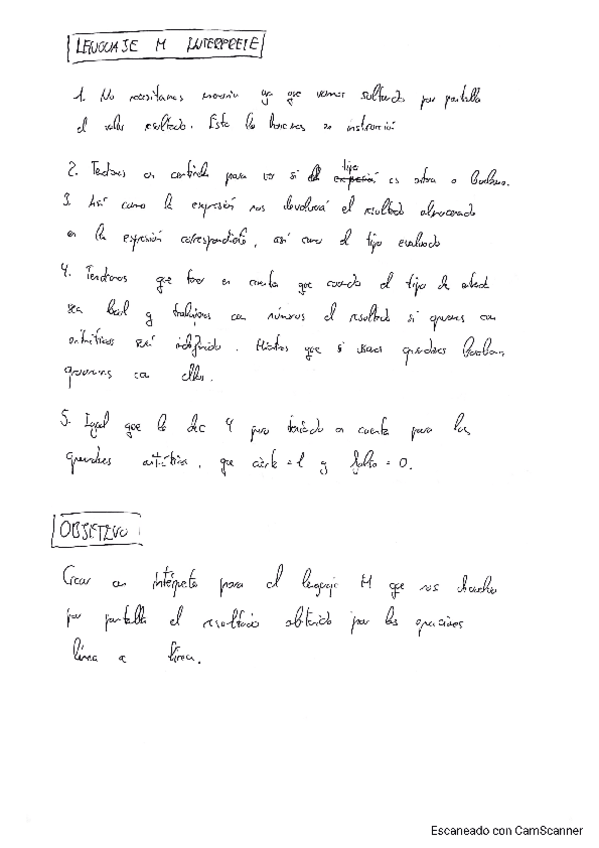 LENGUAJE M INTERPRETE
1. No necesitamos memoria ya que vamos saltando por pantalla
el valor resultado. Esto lo hacemos en instrucció
2. Tendremos en contenido para ver si el tipo es entero o booleano.
3. Así como la expresión nos devolverá el resultado almacenado
en la expresión correspondiente, así como el tipo evaluado
4. Tendremos que tener en cuenta que cuando el tipo de
sea bool y trabajemos con números el resultado si operamos con
aritméticos será indefinido. Mientras que si operandos booleanos
operamos con ellos.
5. Igual que la 4 pero teniendo en cuenta para los
operadores aritméticos, que cierto = 1 y falso = 0.
OBJETIVO
Crear un intérprete para el lenguaje M que nos devuelva
por pantalla el resultado obtenido por las operaciones
línea a línea.
Escaneado con CamScanner